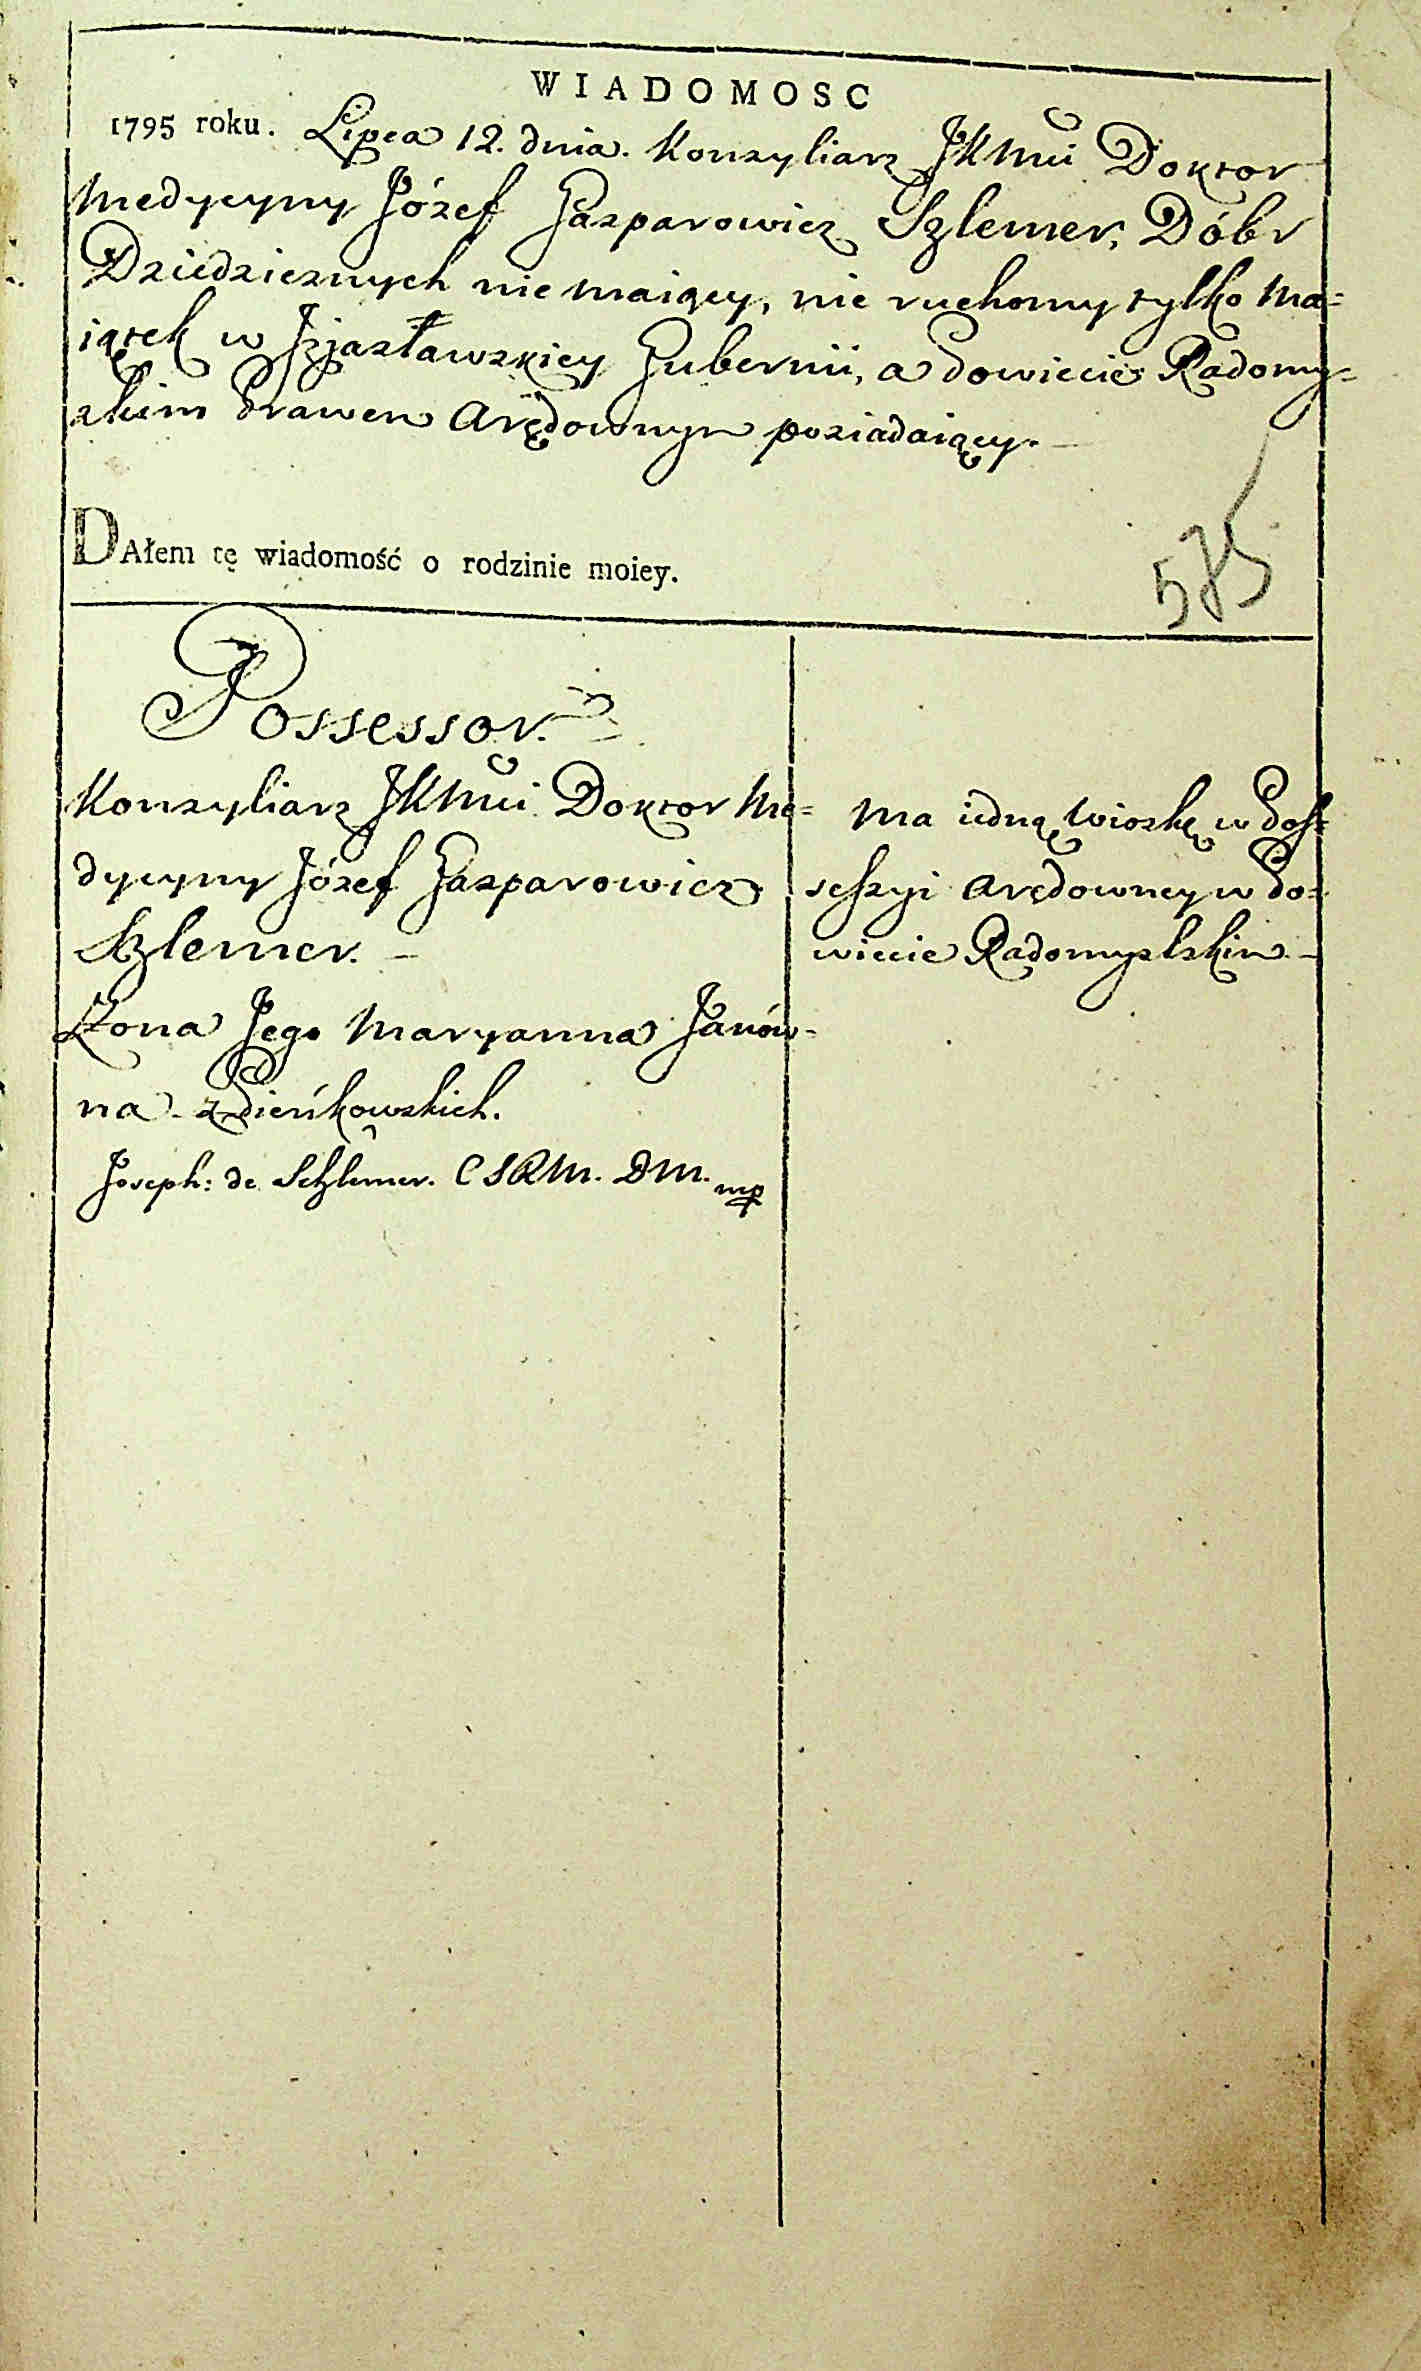 WIADOMOSC
1795 roku. Lipca 12. dnia. Konsyliarz JKMci Doktor
Medycyny Józef Gasparowicz Szlemer, Dóbr
Dziedzicznych nie maiący, nie ruchomy tylko Ma=
iątek w Izjasławskiey Gubernii, a Powiecie Radomy=
skim Prawem Arędownym posiadaiący.
575
DAłem tę wiadomość o rodzinie moiey.
Possessor.
Konsyliarz JKMci Doktor Me=
dycyny Józef Gasparowicz
Szlemer. –
Żona Jego Maryanna Janów-
na z Pieńkowskich.
Joseph: de Schlemer. CSRM. DM. mp
Ma iedną Wioskę w Pos=
sessyi Arędowney w Po=
wiecie Radomyslskim –